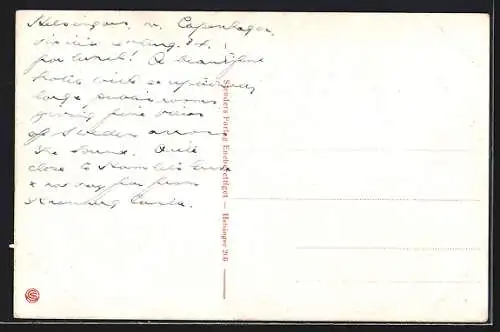 Helsingør, n. Copenhagen,
for lunch! A beautiful
hotel with
large public rooms
giving fine views
of Sweden across
the Sound. Quite
close to Hamlet's
& not very far from
Kronborg Castle.
Stenders Forlag Eneberettiget — Helsingør 268